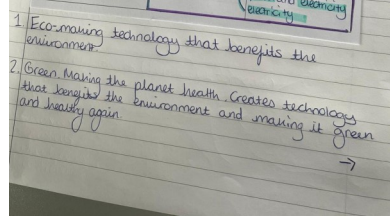 electricity
electricity
1. Eco-making technology that benefits the
environment
2. Green. Making the planet health. Creates technology
that benefits the environment and making it green
and healthy again.
→